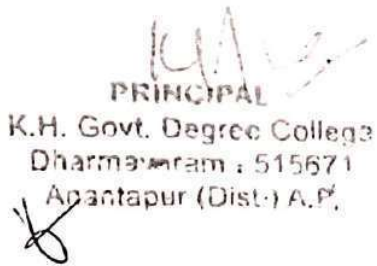 PRINCIPAL
K.H. Govt. Degree College
Dharmavaram : 515671
Anantapur (Dist.) A.P.